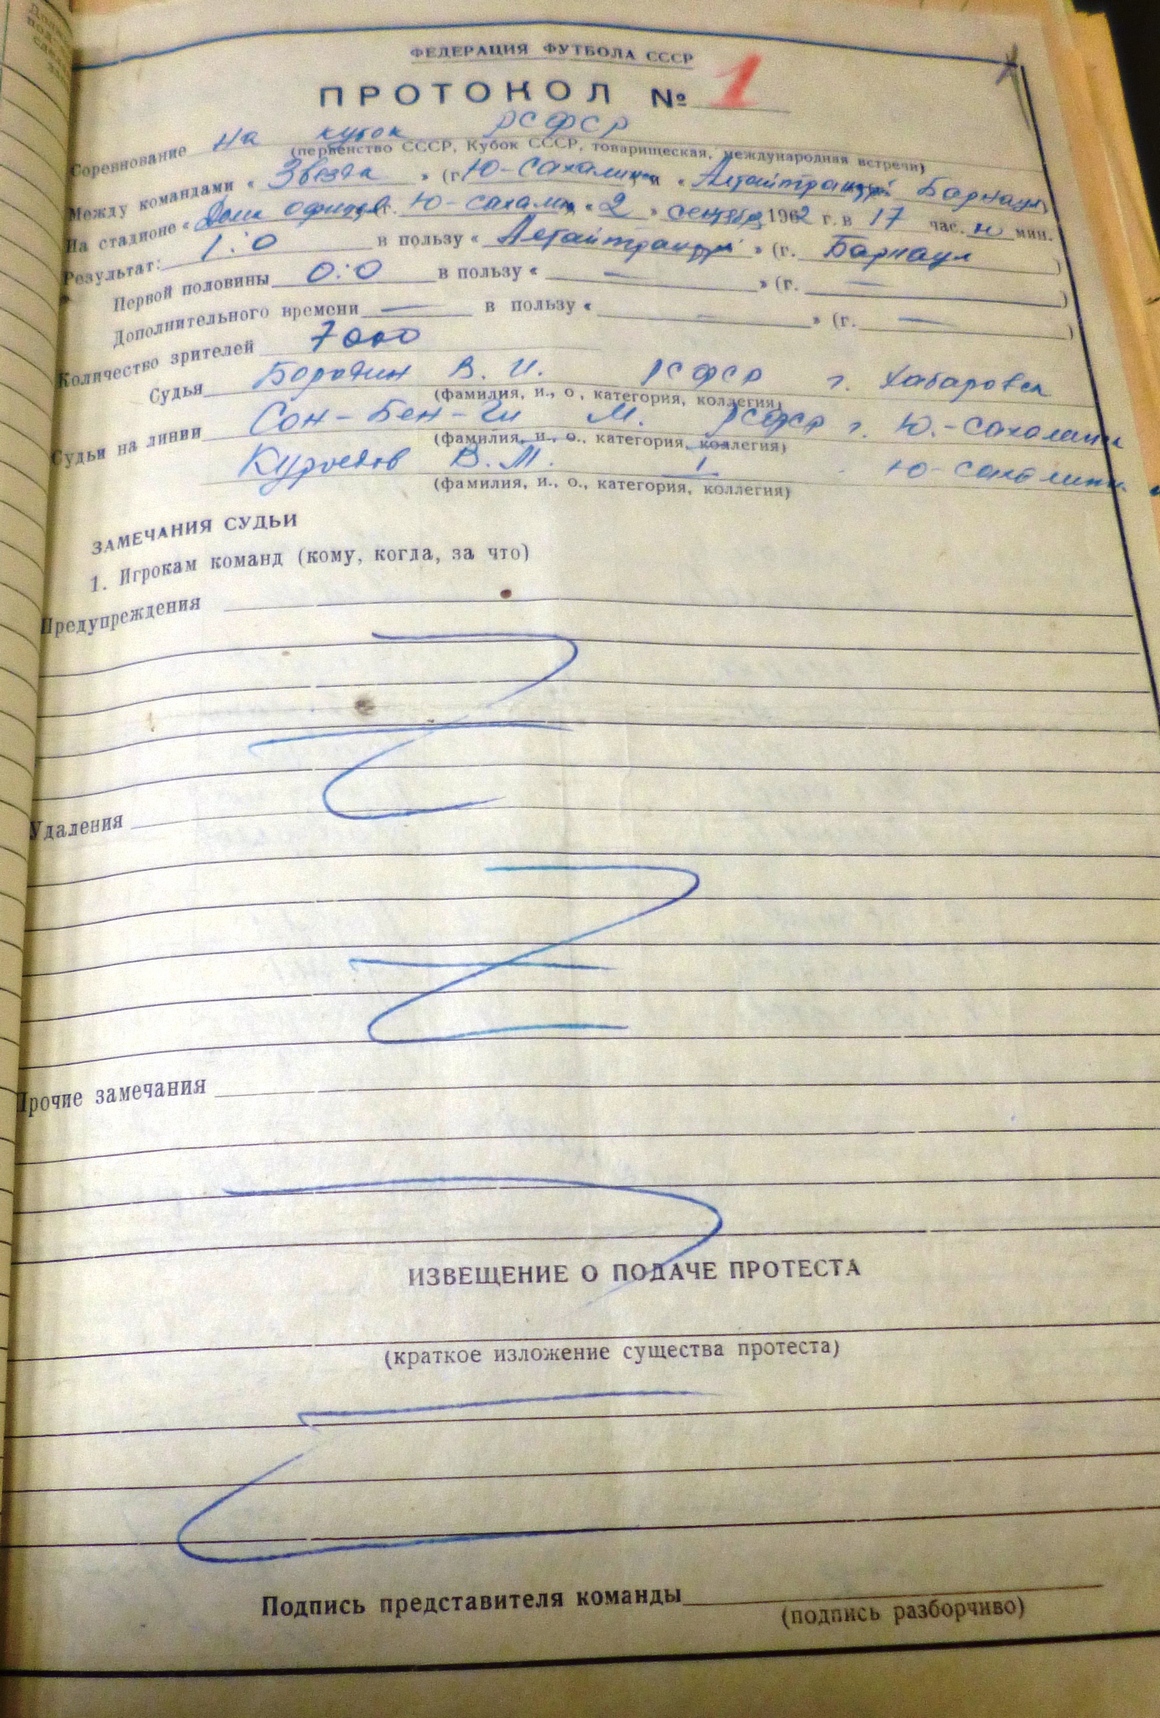 ФЕДЕРАЦИЯ ФУТБОЛА СССР
ПРОТОКОЛ № 1
Соревнование на кубок РСФСР
(первенство СССР, Кубок СССР, товарищеская, международная встречи)
Между командами « Звезда » (г. Ю-Сахалинск и « Барнаул)
На стадионе « Дом офицеров г. Ю-Сахалин « 2 » сентябр 1962 г. в 17 час. мин.
Результат: 1:0 в пользу « » (г. Барнаул )
Первой половины 0:0 в пользу « — » (г. — )
Дополнительного времени — в пользу « — » (г. — )
Количество зрителей 7000
Судья Бородин В. И. РСФСР г. Хабаровск
(фамилия, и., о, категория, коллегия)
Судьи на линии Сон-Бен-Ги М. РСФСР г. Ю.-Сахалинск
(фамилия, и., о., категория, коллегия)
В.М. Ю-Сахалинск
(фамилия, и., о., категория, коллегия)
ЗАМЕЧАНИЯ СУДЬИ
1. Игрокам команд (кому, когда, за что)
Предупреждения
Удаления
Прочие замечания
ИЗВЕЩЕНИЕ О ПОДАЧЕ ПРОТЕСТА
(краткое изложение существа протеста)
Подпись представителя команды
(подпись разборчиво)